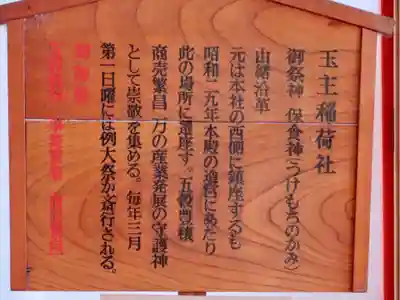 玉主稲荷社
御祭神 保食神(うけもちのかみ)
由緒沿革
元は本社の西側に鎮座するも
昭和二九年本殿の造営にあたり
此の場所に遷座す。五穀豊穣
商売繁昌 万の産業発展の守護神
として崇敬を集める。毎年三月
第一日曜には例大祭が斎行される。